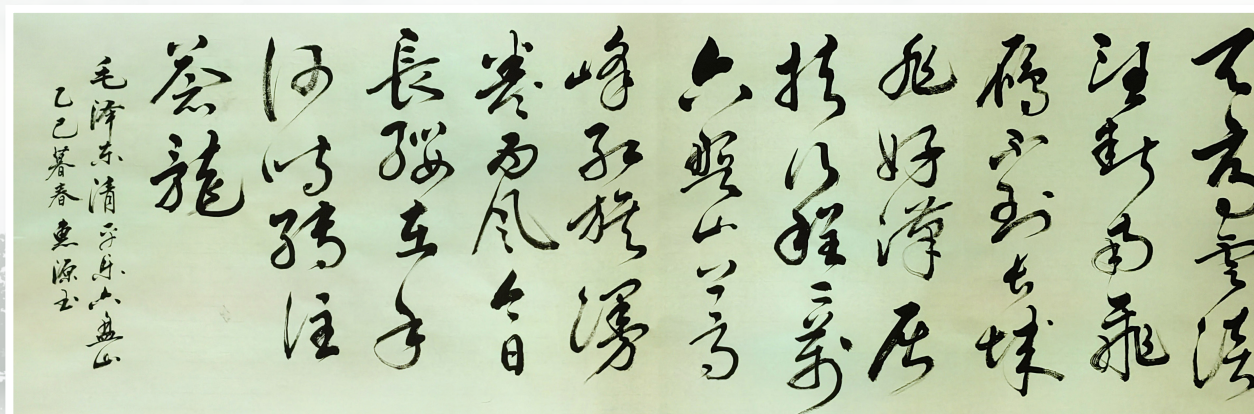 天高雲淡
望断南飛
雁不到长城
非好漢屈
指行程二萬
六盤山上高
峰红旗漫
卷西风今日
長缨在手
何时缚住
蒼龍
毛泽东清平乐六盘山
乙巳暮春源书